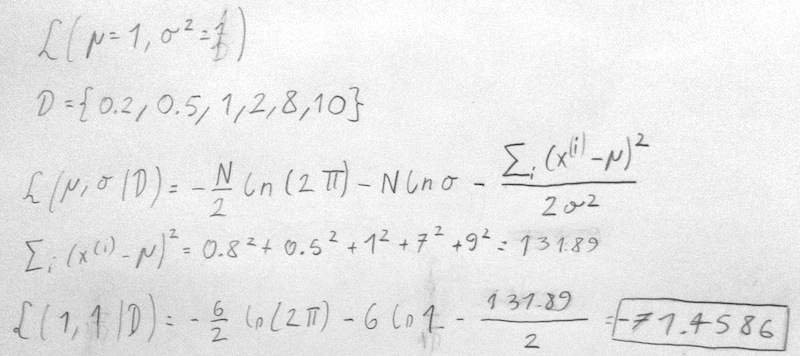 ℒ(μ=1, σ²=1)
D={0.2, 0.5, 1, 2, 8, 10}
ℒ(μ, σ|D) = -N/2 ln(2π) - N ln σ - Σᵢ(x⁽ⁱ⁾-μ)²/2σ²
Σᵢ(x⁽ⁱ⁾-μ)² = 0.8² + 0.5² + 1² + 7² + 9² = 131.89
ℒ(1, 1|D) = -6/2 ln(2π) - 6 ln 1 - 131.89/2 = -71.4586